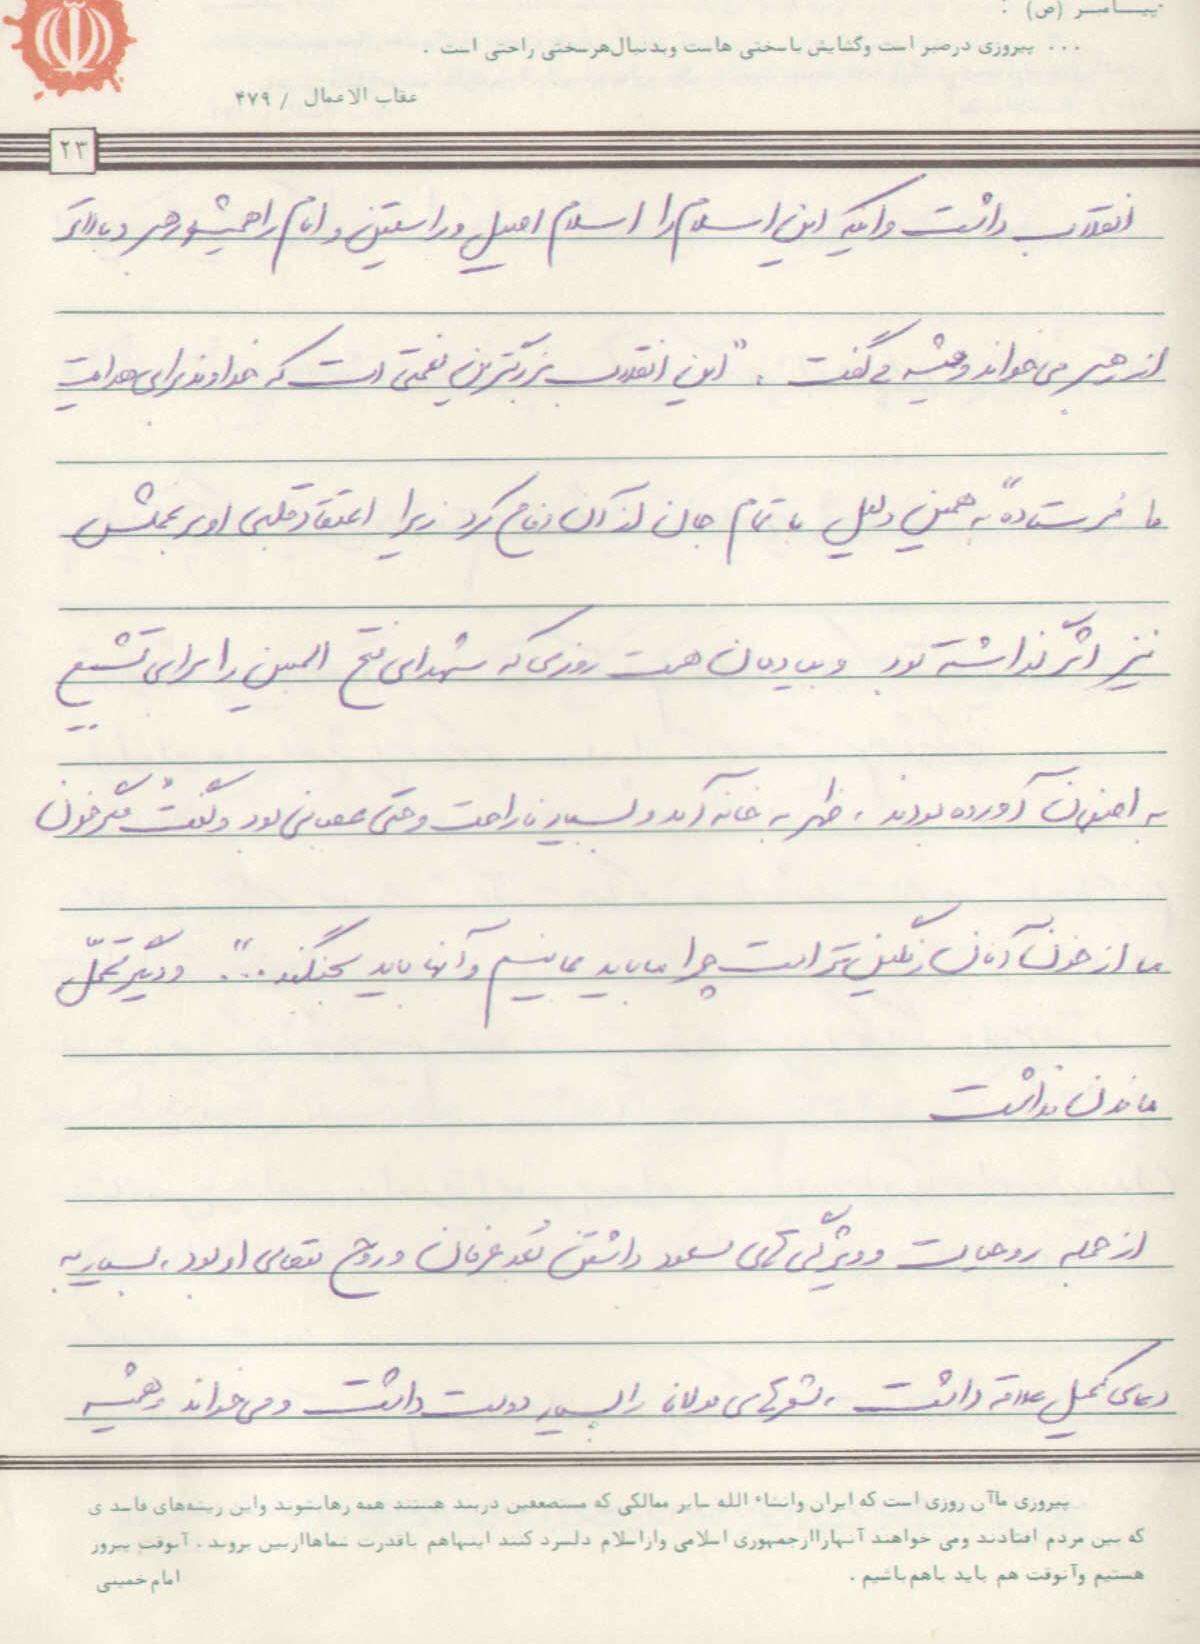 پیـــامبـــر (ص) :
... پیروزی درصبر است وگشایش باسختی هاست وبدنبال‌هرسختی راحتی است .
عقاب الاعمال / ۴۷۹
۲۳
انقلاب داشت واینکه این اسلام را اسلام اصیل و راستین و امام را همیشه رهبر و بالاتر
از رهبر می‌خواند وهمیشه می گفت . "این انقلاب بزرگترین نعمتی است که خداوند برای هدایت
ما فرستاده" به همین دلیل با تمام جان از آن دفاع کرد زیرا اعتقاد قلبی او بر عملش
نیز اثر گذاشته بود و بیادمان هست روزی که شهدای فتح المبین را برای تشییع
به اصفهان آورده بودند ، ظهر به خانه آمد و بسیار ناراحت و حتی عصبانی بود و گفت مگر خون
ما از خون آنان رنگین تر است چرا ما باید بمانیم و آنها باید بجنگند ..." . و دیگر تحمّل
ماندن نداشت
از جمله روحیات و ویژگی های مسعود داشتن بُعد عرفان و روح متعالی او بود ، بسیار به
دعای کمیل علاقه داشت ، شعرهای مولانا را بسیار دوست داشت و می‌خواند و همیشه
پیروزی ماآن روزی است که ایران وانشاء الله سایر ممالکی که مستضعفین دربند هستند همه رهابشوند واین ریشه‌های فاسد ی
که بین مردم افتادند ومی خواهند آنهاراازجمهوری اسلامی وازاسلام دلسرد کنند اینهاهم باقدرت شماهاازبین بروند . آنوقت پیروز
هستیم وآنوقت هم باید باهم‌باشیم .
امام خمینی